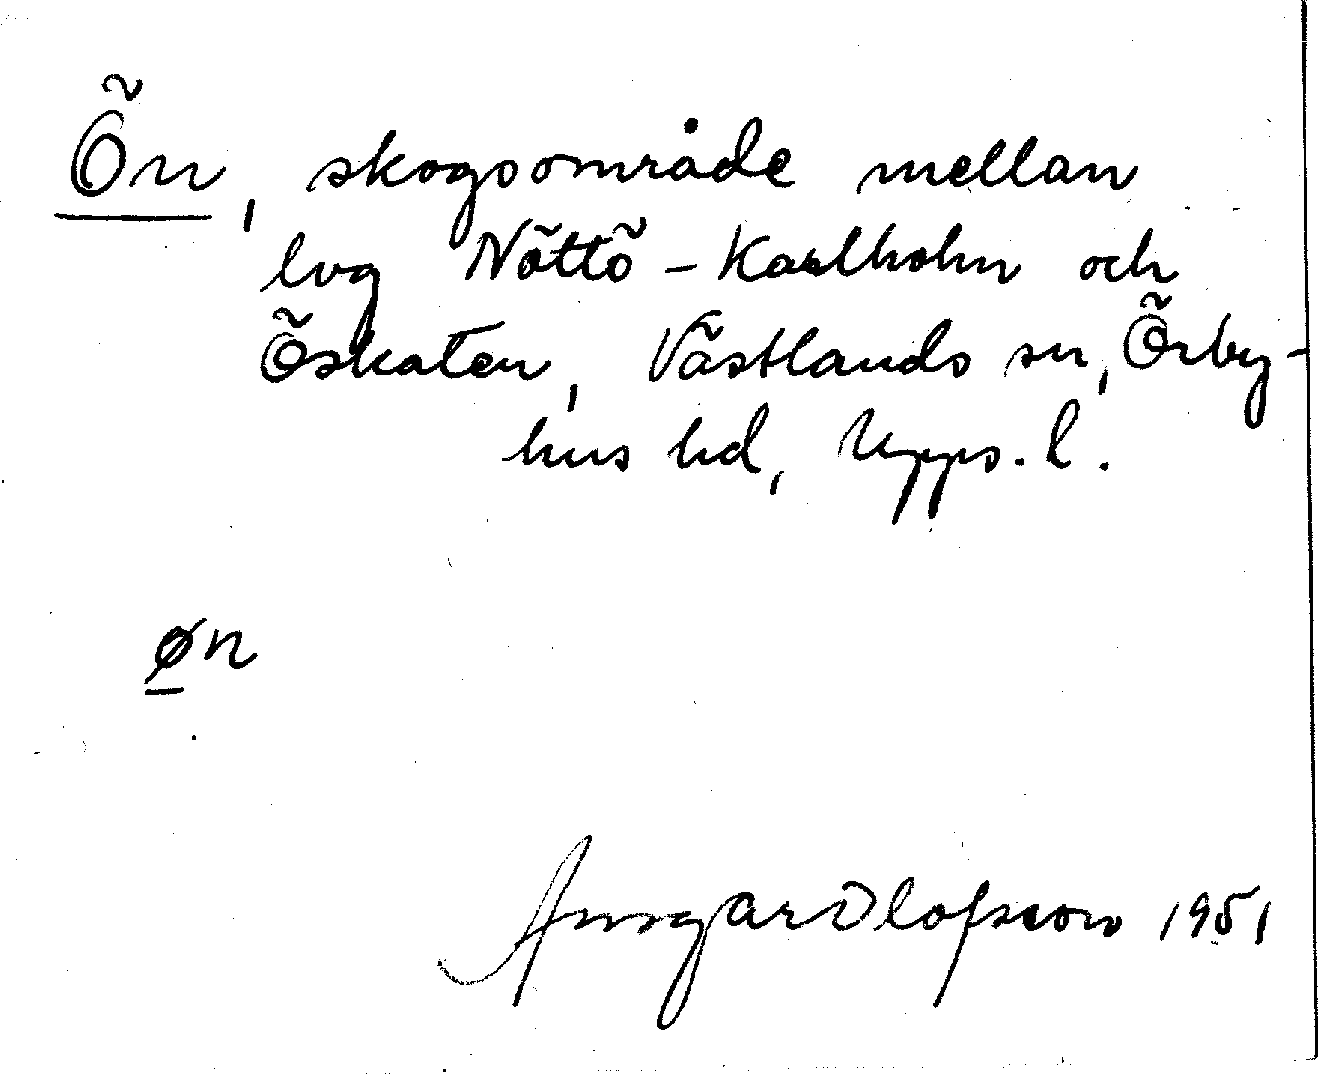 Ön, skogsområde mellan
lvg Nöttö - Karlholm och
Öskaten, Västlands sn, Örby-
hus hd, Upps. l.
øn
Ansgar Olofsson 1951